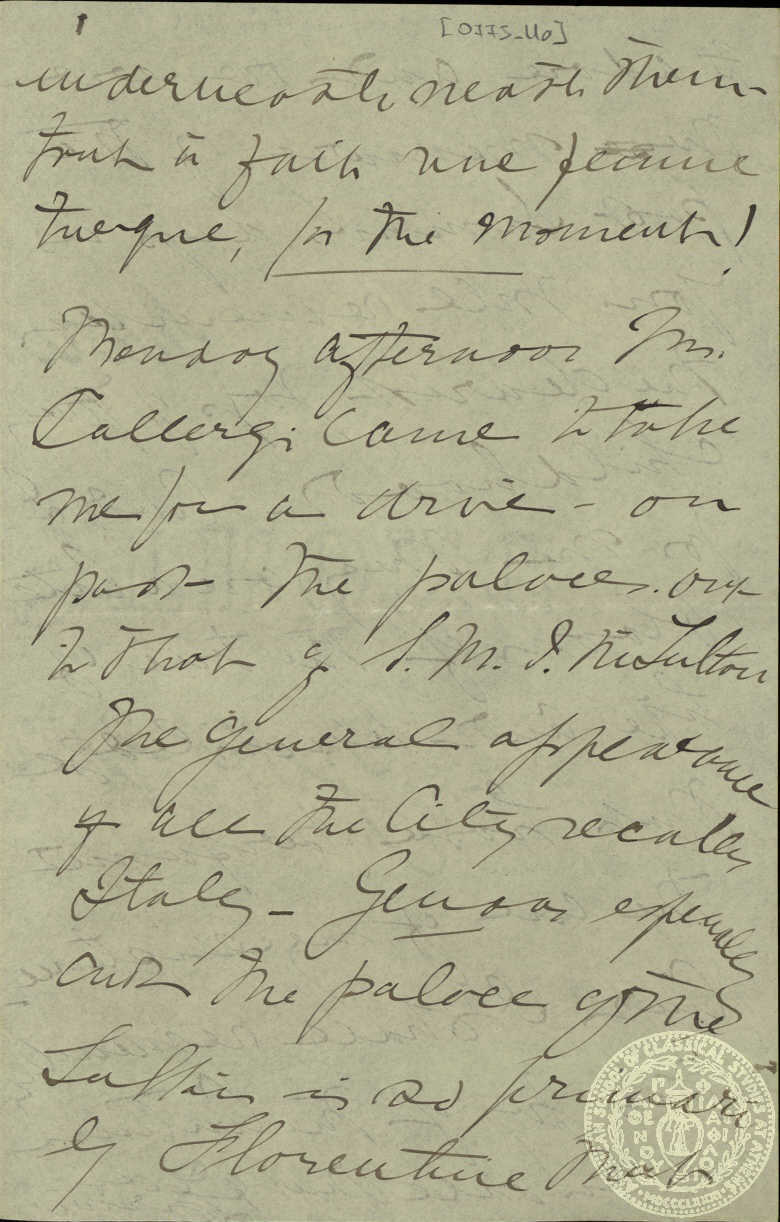 underneath neath them -
tout à fait une femme
turque, for the moment!
Monday afternoon Mr.
Callergi came to take
me for a drive - on
past the palaces. out
to that of S. M. I. the Sultan
The general appearance
of all the City recalls
Italy - Genoa especially
and the palace of the
Sultan is so primari
ly Florentine that